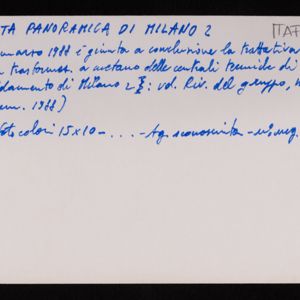 TA PANORAMICA DI MILANO 2
ITAT
marzo 1988 è giunta a conclusione la trattativa
trasformaz. a metano delle centrali termiche di
damento di Milano 2 : vol. Riv. del gruppo, n
1988)
foto colori 15x10 - . . . . - Ag. sconosciuta - n° neg.